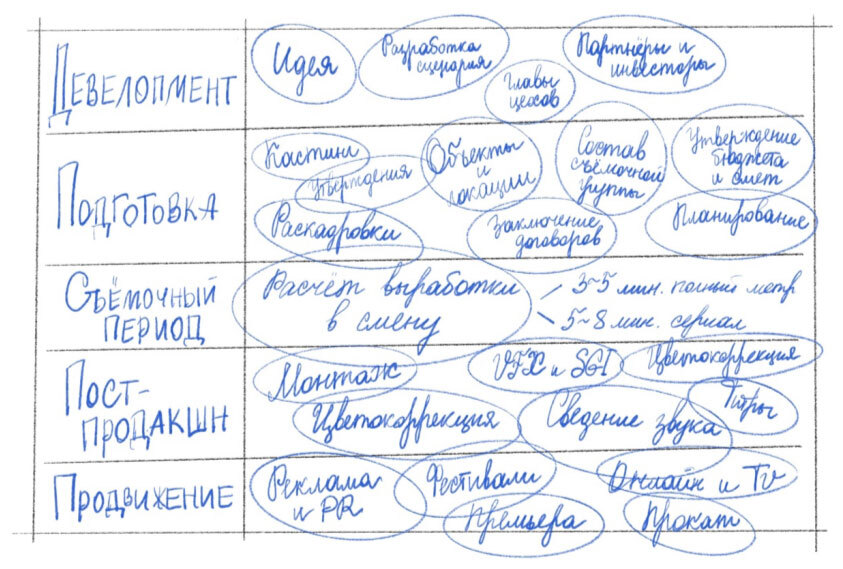 Девелопмент
Идея
Разработка
сценария
Партнёры и
инвесторы
Главы
цехов
Подготовка
Кастинг
Утверждения
Объекты
и
локации
Состав
съёмочной
группы
Утверждение
бюджета
и смет
Раскадровки
Заключение
договоров
Планирование
Съёмочный
период
Расчёт выработки
в смену
3~5 мин. полный метр
5~8 мин. сериал
Пост-
продакшн
Монтаж
VFX и SGI
Цветокоррекция
Цветокоррекция
Сведение звука
Титры
Продвижение
Реклама
и PR
Фестивали
Онлайн и TV
Премьера
Прокат